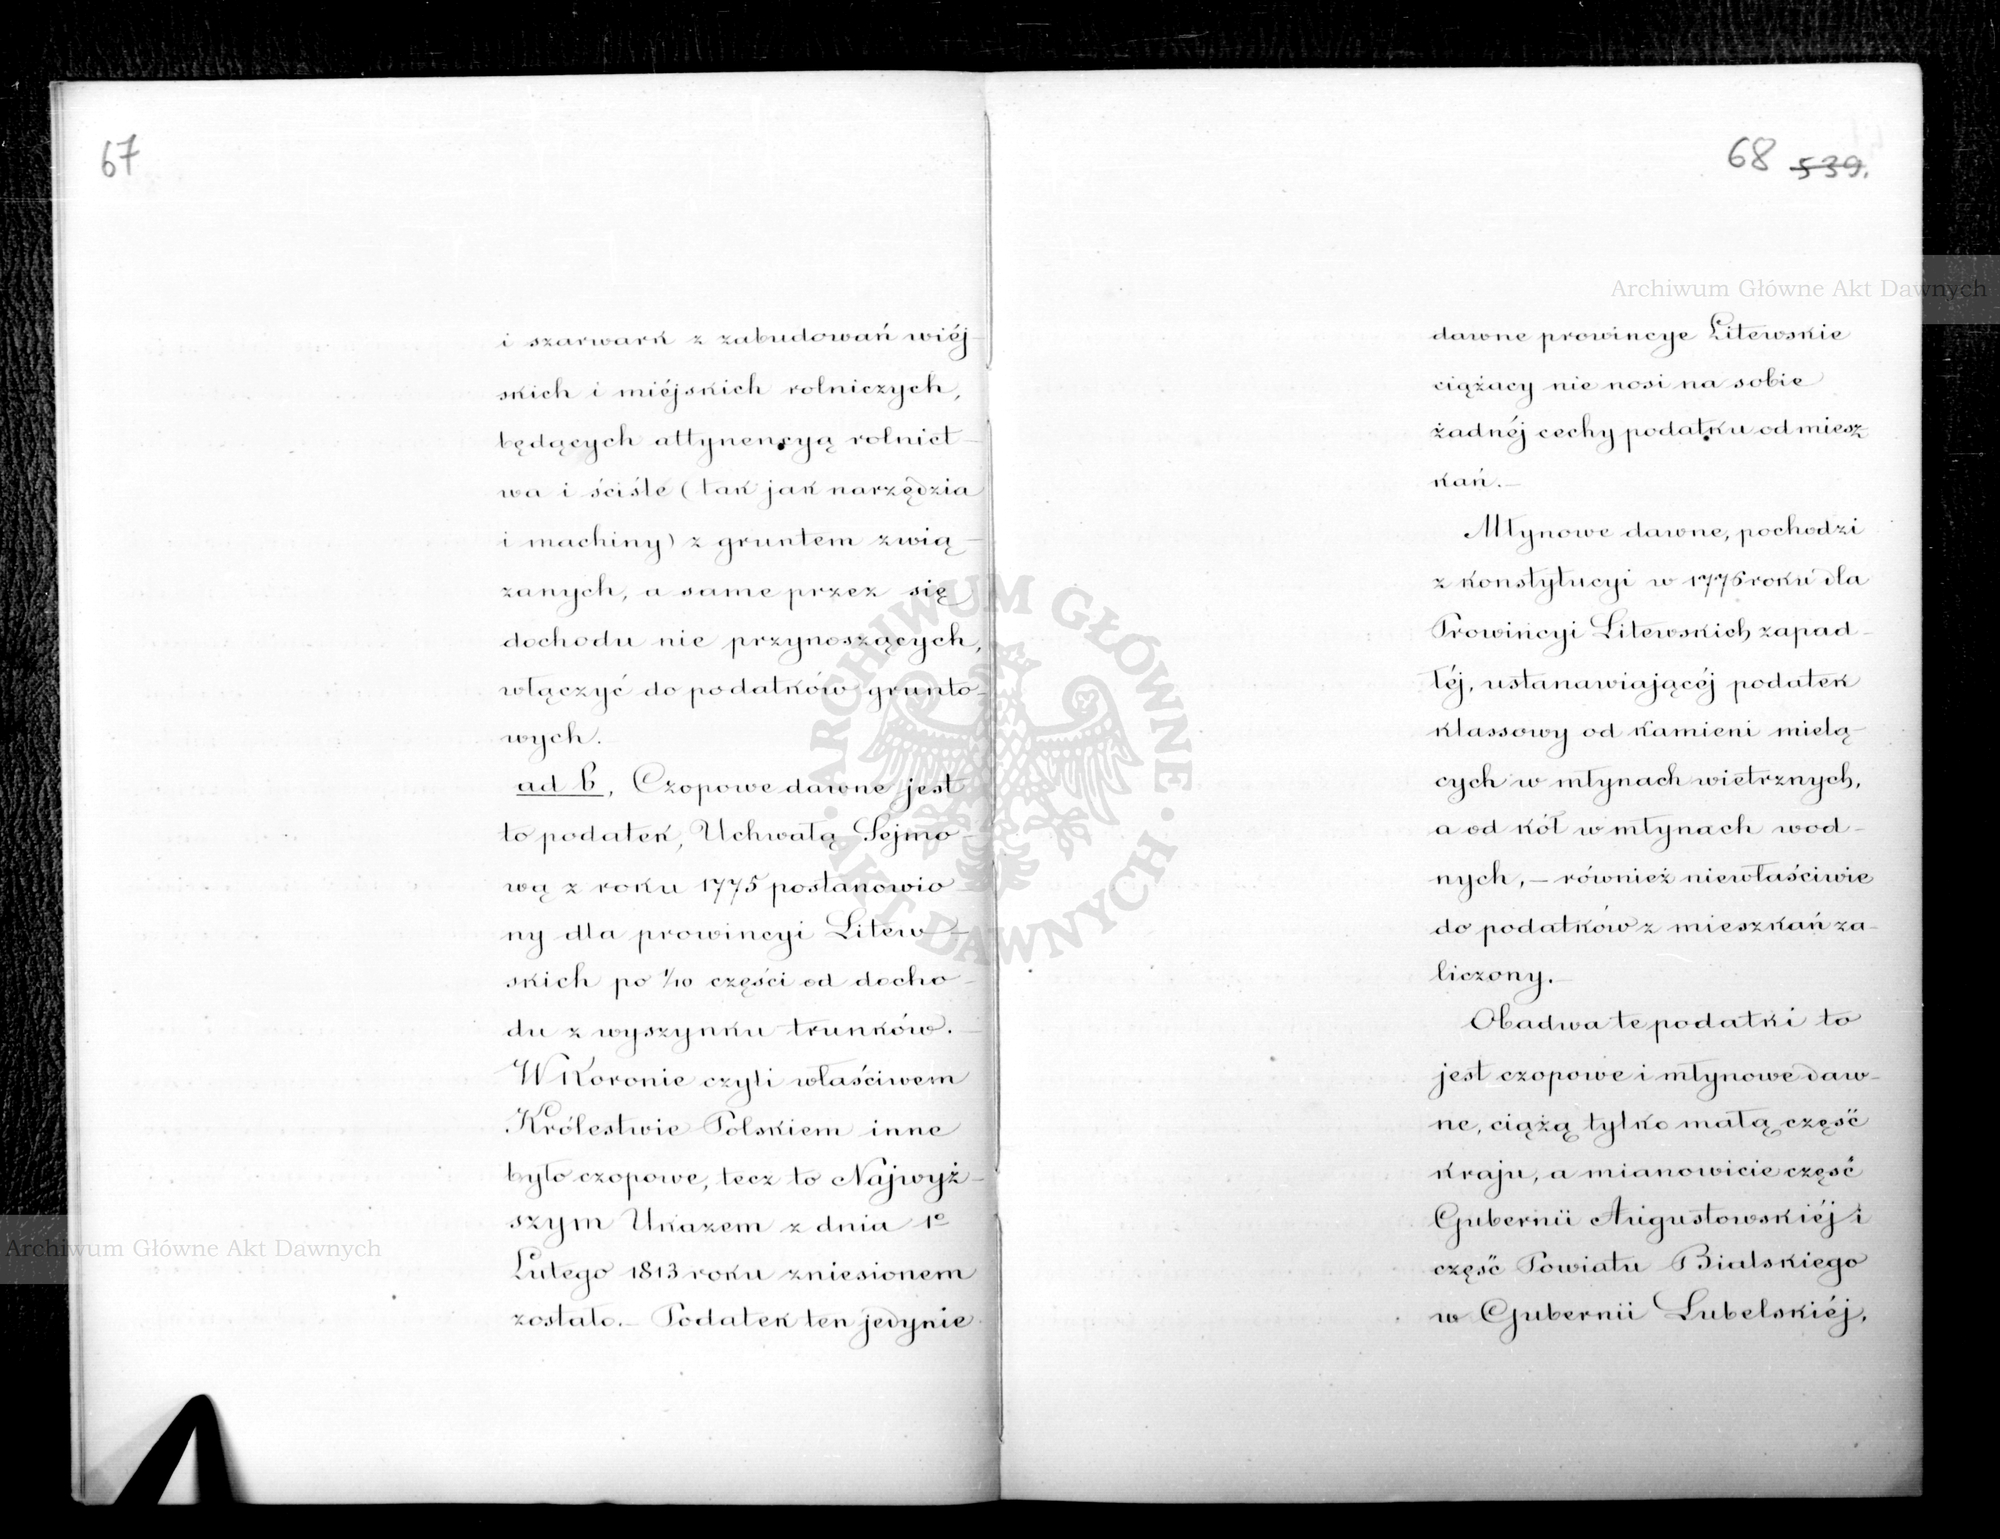 67
i szarwark z zabudowań wiéj-
skich i miéjskich rolniczych,
będących attynencyą rolnict-
wa i ściśle (tak jak narzędzia
i machiny) z gruntem zwią-
zanych, a same przez się
dochodu nie przynoszących,
włączyć do podatków grunto-
wych.
ad b, Czopowe dawne jest
to podatek, Uchwałą Sejmo-
wą z roku 1775 postanowio-
ny dla prowincyi Litew-
skich po 1/10 części od docho-
du z wyszynku trunków.
W Koronie czyli właściwem
Królestwie Polskiem inne
było czopowe, lecz to Najwyż-
szym Ukazem z dnia 1º
Lutego 1813 roku zniesionem
zostało.- Podatek ten jedynie
68 539.
dawne prowincye Litewskie
ciążący nie nosi na sobie
żadnéj cechy podatku od miesz
kań.-
Młynowe dawne, pochodzi
z konstytucyi w 1776 roku dla
Prowincyi Litewskich zapad-
łéj, ustanawiającéj podatek
klassowy od kamieni mielą-
cych w młynach wietrznych,
a od kół w młynach wod-
nych,- również niewłaściwie
do podatków z mieszkań za-
liczony.-
Obadwa te podatki to
jest czopowe i młynowe daw-
ne, ciążą tylko małą część
kraju, a mianowicie część
Gubernii Augustowskiéj i
część Powiatu Bialskiego
w Gubernii Lubelskiéj,
Archiwum Główne Akt Dawnych
Archiwum Główne Akt Dawnych
ARCHIWUM GŁÓWNE • AKT DAWNYCH •